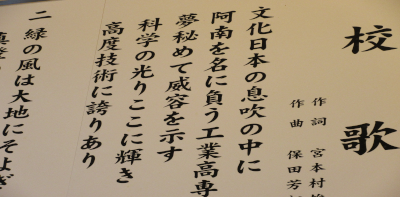 校歌
作詞 宮本村
作曲 保田芳
文化日本の息吹の中に
阿南を名に負う工業高専
夢秘めて威容を示す
科学の光りここに輝き
高度技術に誇りあり
二 緑の風は大地にそよぎ